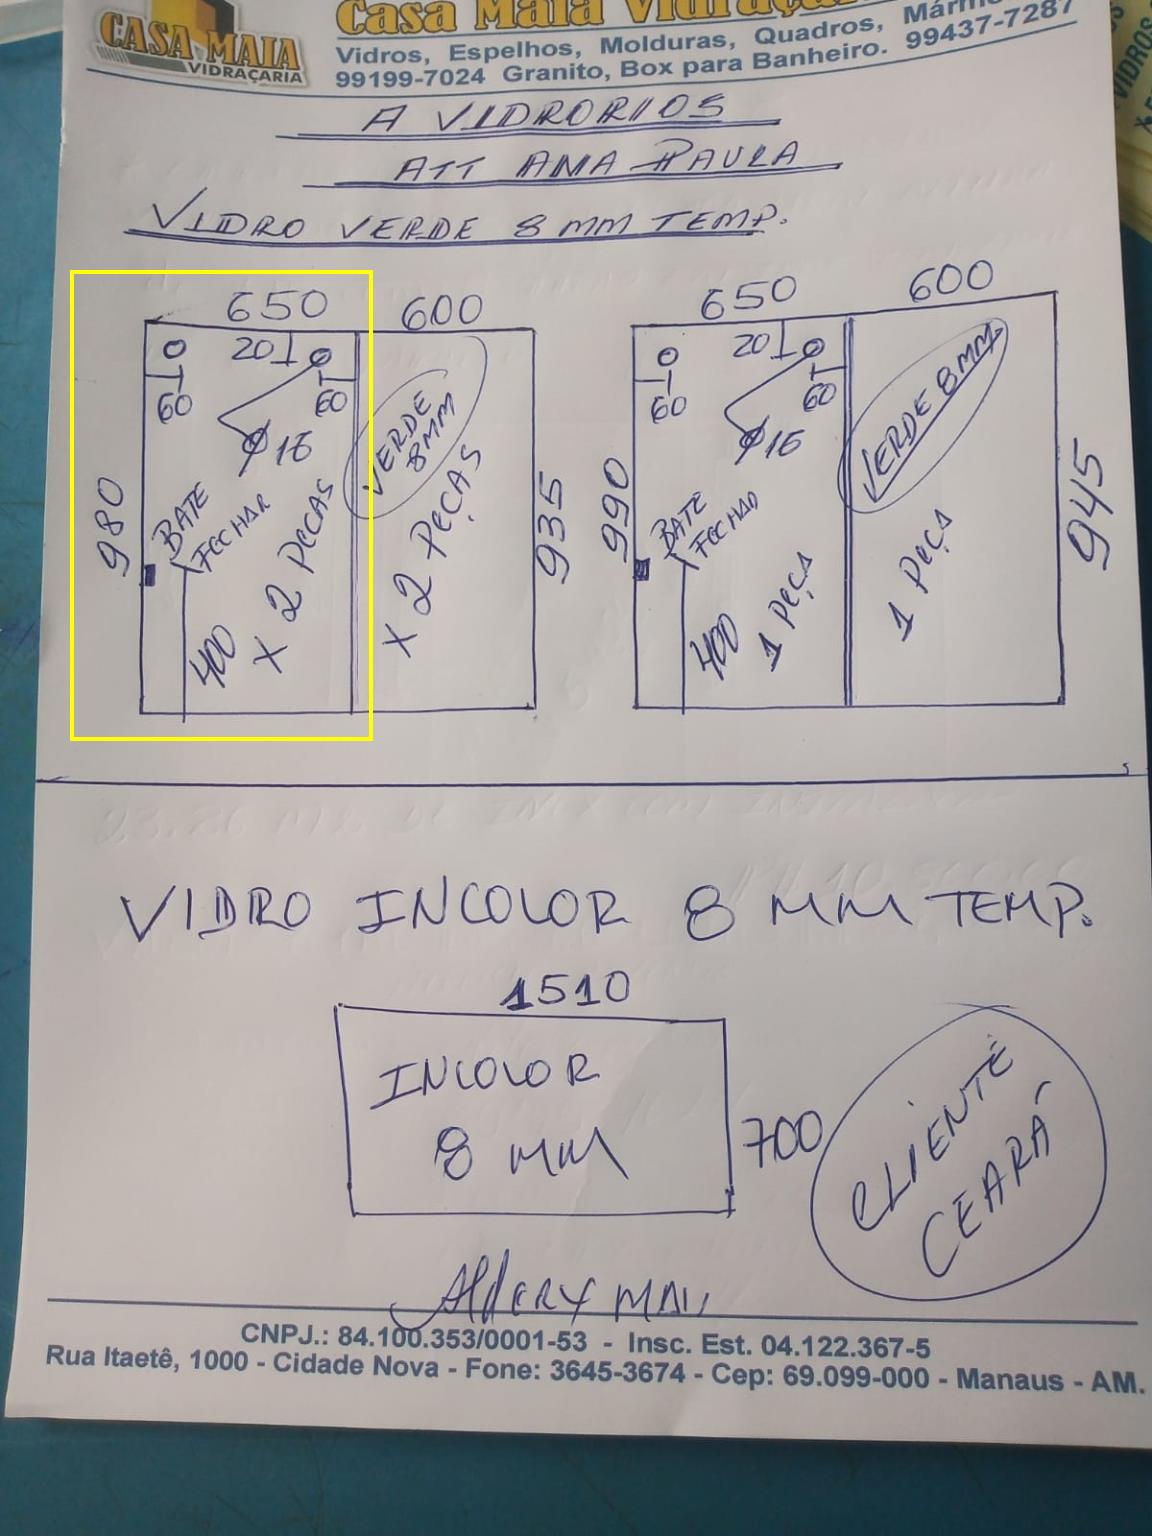 CASA MAIA
VIDRAÇARIA
Casa Maia Vidraçar
Vidros, Espelhos, Molduras, Quadros, Mármo
99199-7024 Granito, Box para Banheiro. 99437-7287
VIDROS
A VIDRORIOS
ATT ANA PAULA
VIDRO VERDE 8 MM TEMP.
650 600
20
60 60
Ø16
980
BATE
FECHAR
400
X 2 PECAS
VERDE
8MM
X 2 PEÇAS
935
650 600
20
60 60
Ø16
990
BATE
FECHAR
400
1 PEÇA
VERDE 8MM
1 PEÇA
945
VIDRO INCOLOR 8 MM TEMP.
1510
INCOLOR
8 MM
700
CLIENTE
CEARÁ
CNPJ.: 84.100.353/0001-53 - Insc. Est. 04.122.367-5
Rua Itaetê, 1000 - Cidade Nova - Fone: 3645-3674 - Cep: 69.099-000 - Manaus - AM.